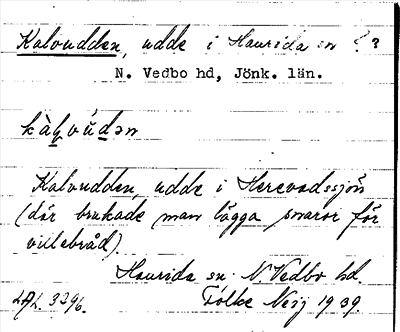 Kalvudden, udde i Haurida sn ? ?
N. Vedbo hd, Jönk. län.
kàlvúdən
Kalvudden, udde i Herevadssjön
(där brukade man lägga snaror för
villebråd).
Haurida sn. N. Vedbo hd.
3396. Fölke 1939.